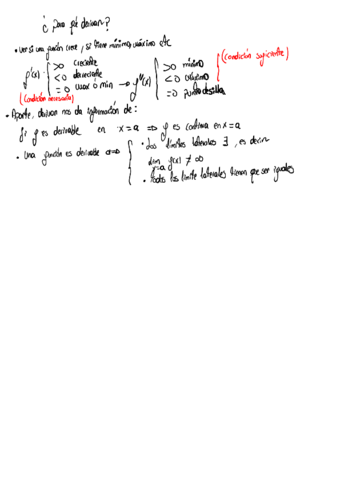 ¿Para qué derivar?
• Ver si una función crece, si tiene mínimo, máximo etc
(condición suficiente)
f'(x) { >0 creciente
<0 decreciente
=0 max ó min → f''(x) { >0 mínimo
<0 máximo
=0 punto de silla
(condición necesaria)
• Aparte, derivar nos da información de:
Si f es derivable en x=a ⇒ f es continua en x=a
• Una función es derivable { • Los límites laterales ∃, es decir
lim x→a f(x) ≠ ∞
• Todos los límite laterales tienen que ser iguales